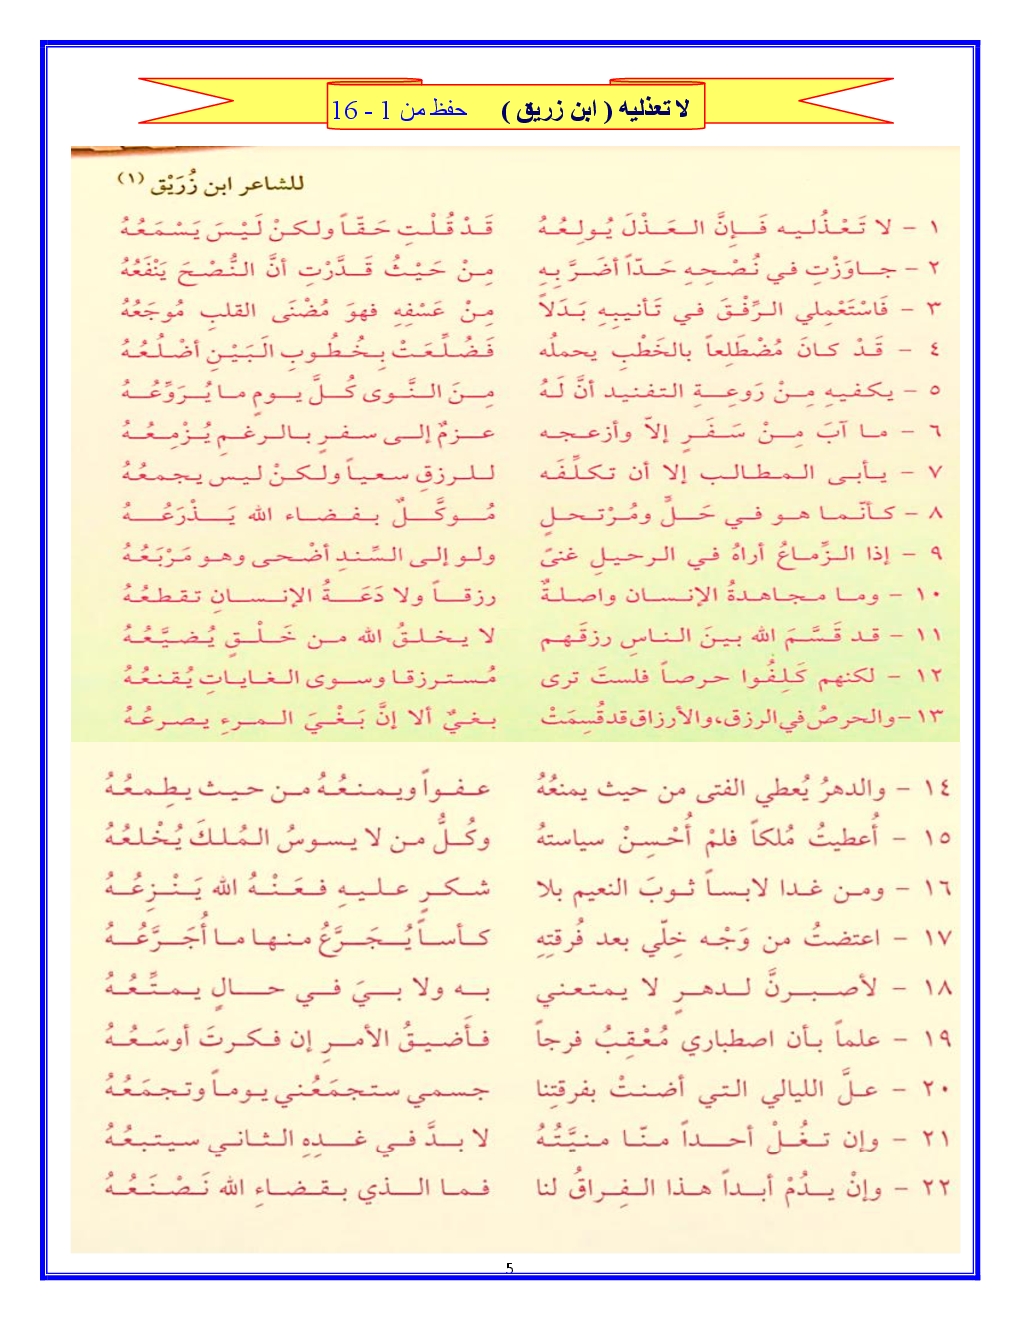 لا تعذليه ( ابن زريق )      حفظ من 1 - 16
للشاعر ابن زُرَيْق (١)
١ - لا تَعْذُليه فَإنَّ العَذْلَ يُولِعُهُ     قَدْ قُلْتِ حَقّاً ولكنْ لَيْسَ يَسْمَعُهُ
٢ - جاوَزْتِ في نُصْحِهِ حَدّاً أضَرَّ بِهِ     مِنْ حَيْثُ قَدَّرْتِ أنَّ النُّصْحَ يَنْفَعُهُ
٣ - فَاسْتَعْمِلي الرِّفْقَ في تَأنيبِهِ بَدَلاً     مِنْ عَسْفِهِ فهوَ مُضْنَى القلبِ مُوجَعُهُ
٤ - قَدْ كانَ مُضْطَلِعاً بالخَطْبِ يحملُه     فَضُلِّعَتْ بِخُطُوبِ البَيْنِ أضْلُعُهُ
٥ - يكفيهِ مِنْ رَوعِةِ التفنيد أنَّ لَهُ     مِنَ النَّوى كُلَّ يومٍ ما يُرَوِّعُهُ
٦ - ما آبَ مِنْ سَفَرٍ إلاّ وأزعجه     عزمٌ إلى سفرٍ بالرغمِ يُزْمِعُهُ
٧ - يأبى المطالب إلا أن تكلِّفَه     للرزقِ سعياً ولكنْ ليس يجمعُهُ
٨ - كأنّما هو في حَلٍّ ومُرْتحلٍ     مُوكَّلٌ بفضاء الله يَذْرَعُهُ
٩ - إذا الزِّماعُ أراهُ في الرحيلِ غنىً     ولو إلى السِّندِ أضْحى وهو مَرْبَعُهُ
١٠ - وما مجاهدةُ الإنسان واصلةٌ     رزقاً ولا دَعَةُ الإنسانِ تقطعُهُ
١١ - قد قَسَّمَ الله بينَ الناسِ رزقَهم     لا يخلقُ الله من خَلْقٍ يُضيَّعُهُ
١٢ - لكنهم كَلِفُوا حرصاً فلستَ ترى     مُسترزقا وسوى الغاياتِ يُقنعُهُ
١٣ - والحرصُ في الرزق، والأرزاق قد قُسِمَتْ     بغيٌ ألا إنَّ بَغْيَ المرءِ يصرعُهُ
١٤ - والدهرُ يُعطي الفتى من حيث يمنعُهُ     عفواً ويمنعُهُ من حيث يطمعُهُ
١٥ - أُعطيتُ مُلكاً فلمْ أُحْسِنْ سياستهُ     وكُلُّ من لا يسوسُ المُلكَ يُخْلعُهُ
١٦ - ومن غدا لابساً ثوبَ النعيم بلا     شكرٍ عليهِ فعَنْهُ الله يَنْزِعُهُ
١٧ - اعتضتُ من وَجْه خِلّي بعد فُرقتِهِ     كأساً يُجَرَّعُ منها ما أُجَرَّعُهُ
١٨ - لأصبرنَّ لدهرٍ لا يمتعني     به ولا بيَ في حالٍ يمتِّعُهُ
١٩ - علماً بأن اصطباري مُعْقِبُ فرجاً     فأَضيقُ الأمرِ إن فكرتَ أوسَعُهُ
٢٠ - علَّ الليالي التي أضنتْ بفرقتِنا     جسمي ستجمَعُني يوماً وتجمَعُهُ
٢١ - وإن تغُلْ أحداً منّا منيَّتُهُ     لا بدَّ في غدِهِ الثاني سيتبعُهُ
٢٢ - وإنْ يدُمْ أبداً هذا الفِراقُ لنا     فما الذي بقضاءِ الله نَصْنَعُهُ
5